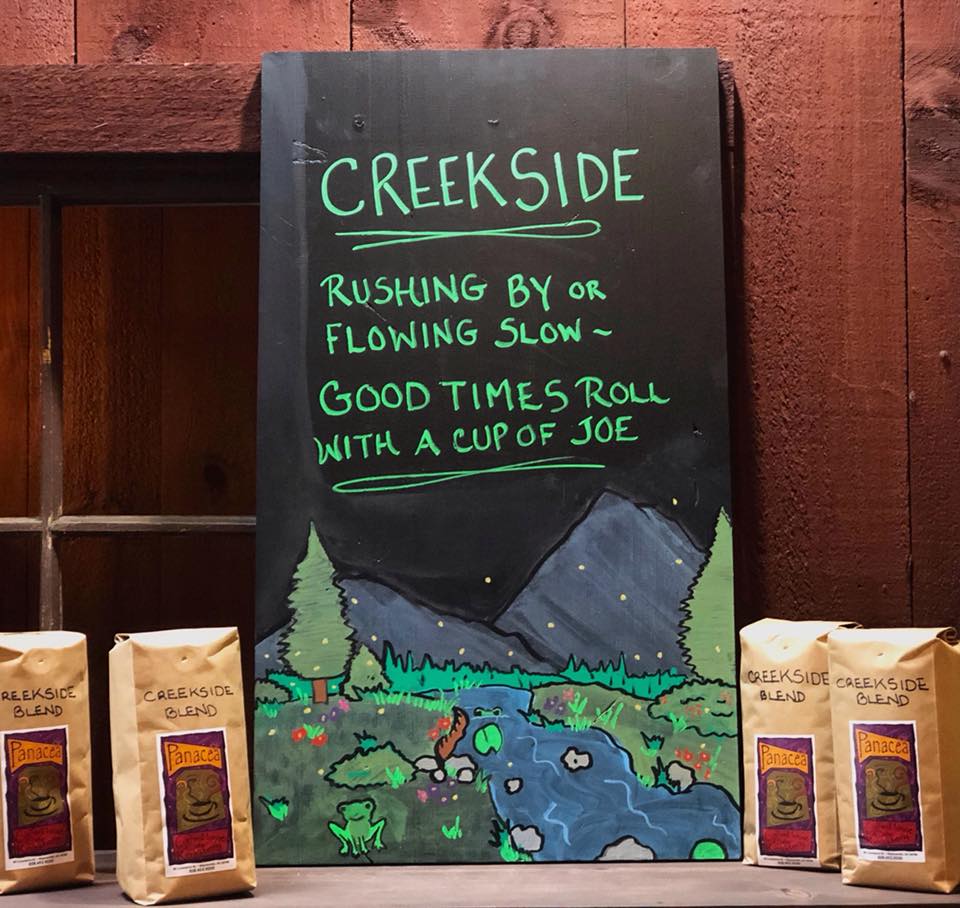 CREEKSIDE
RUSHING BY OR
FLOWING SLOW ~
GOOD TIMES ROLL
WITH A CUP OF JOE
REEKSIDE
BLEND
Panacea
CREEKSIDE
BLEND
Panacea
CREEKSIDE
BLEND
Panacea
CREEKSIDE
BLEND
Panacea